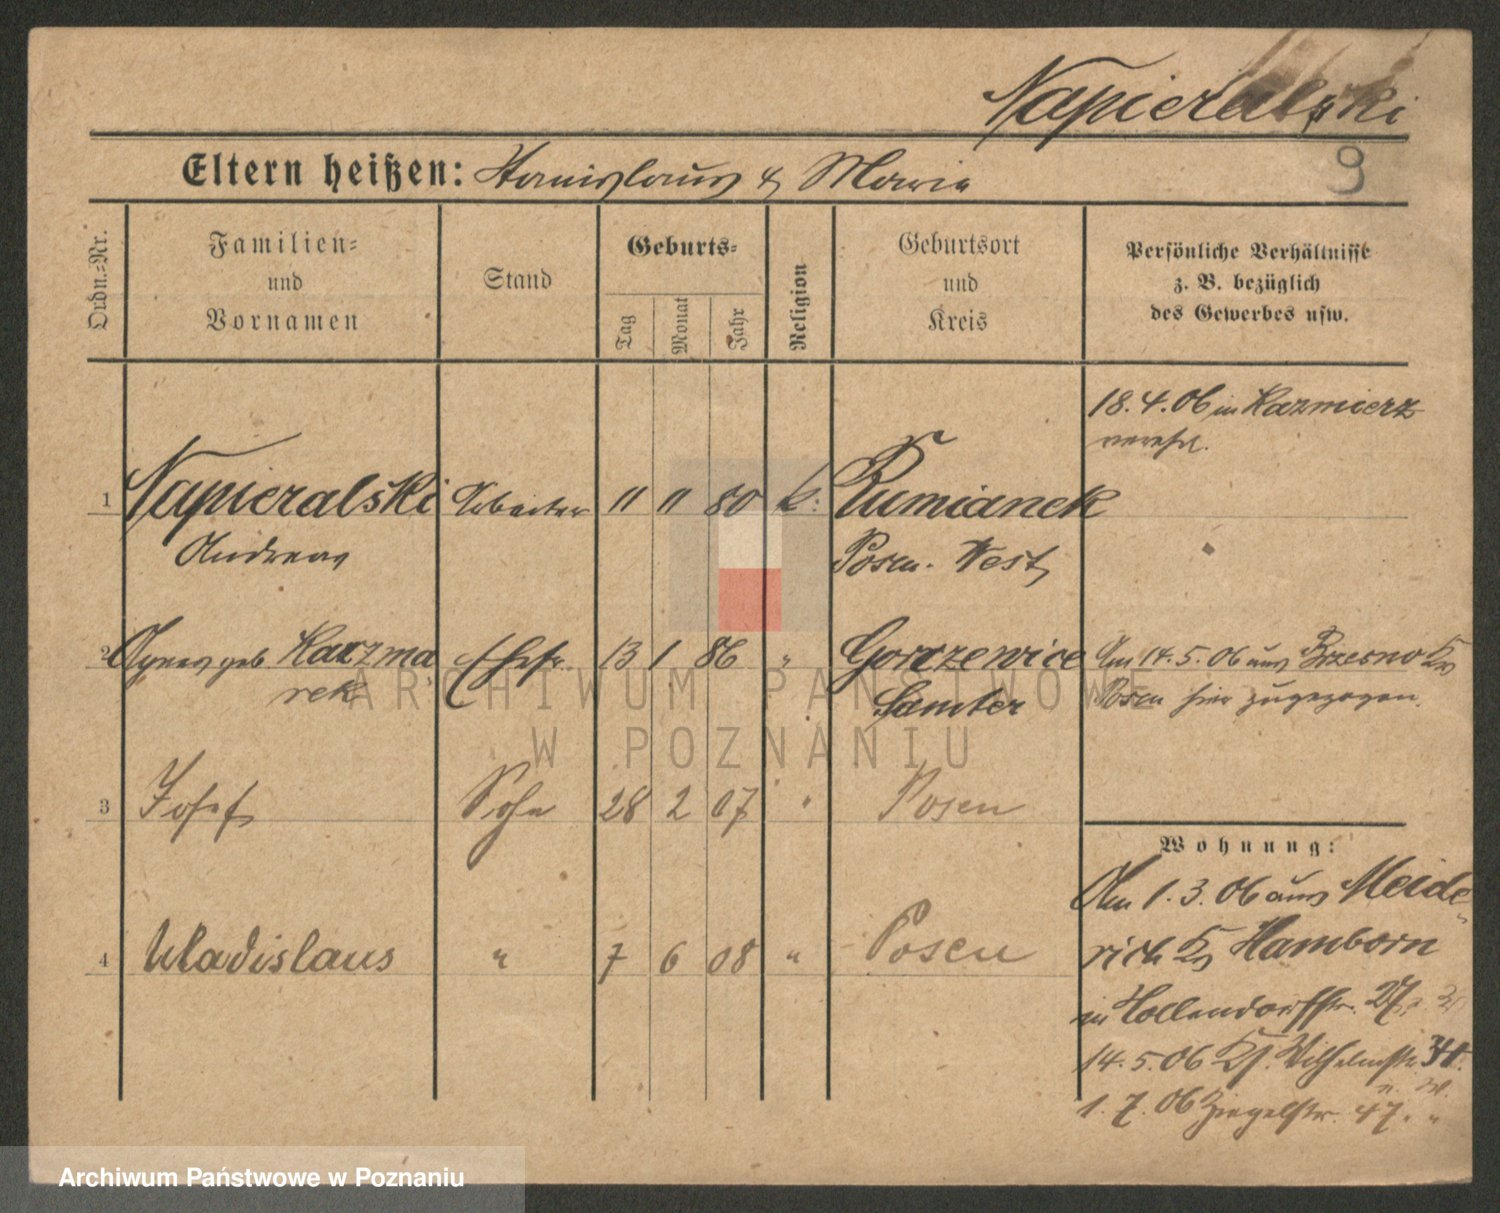 Napieralski
9
Eltern heißen: Stanislaus & Maria
Ordn.=Nr.
Familien=
und
Vornamen
Stand
Geburts=
Tag
Monat
Jahr
Religion
Geburtsort
und
Kreis
Persönliche Verhältnisse
z. B. bezüglich
des Gewerbes usw.
18.4.06 in Kazmierz
verehel.
1 Napieralski Arbeiter 11 11 80 k. Rumianek
Andreas Posen. West
2 Agnes geb. Kaczma Ehefr. 13 1 86 " Gorszewice Am 14.5.06 aus Brzesno Ks
rek Samter Posen hier zugezogen.
3 Josef Sohn 28 2 07 " Posen
Wohnung:
Am 1.3.06 aus Meide-
4 Wladislaus " 7 6 08 " Posen rich Ks Hamborn
in Hollendorffstr. 27.
14.5.06 Wilhelmstr.
1.7.06 Ziegelstr. 47. "
ARCHIWUM PAŃSTWOWE
W POZNANIU
Archiwum Państwowe w Poznaniu